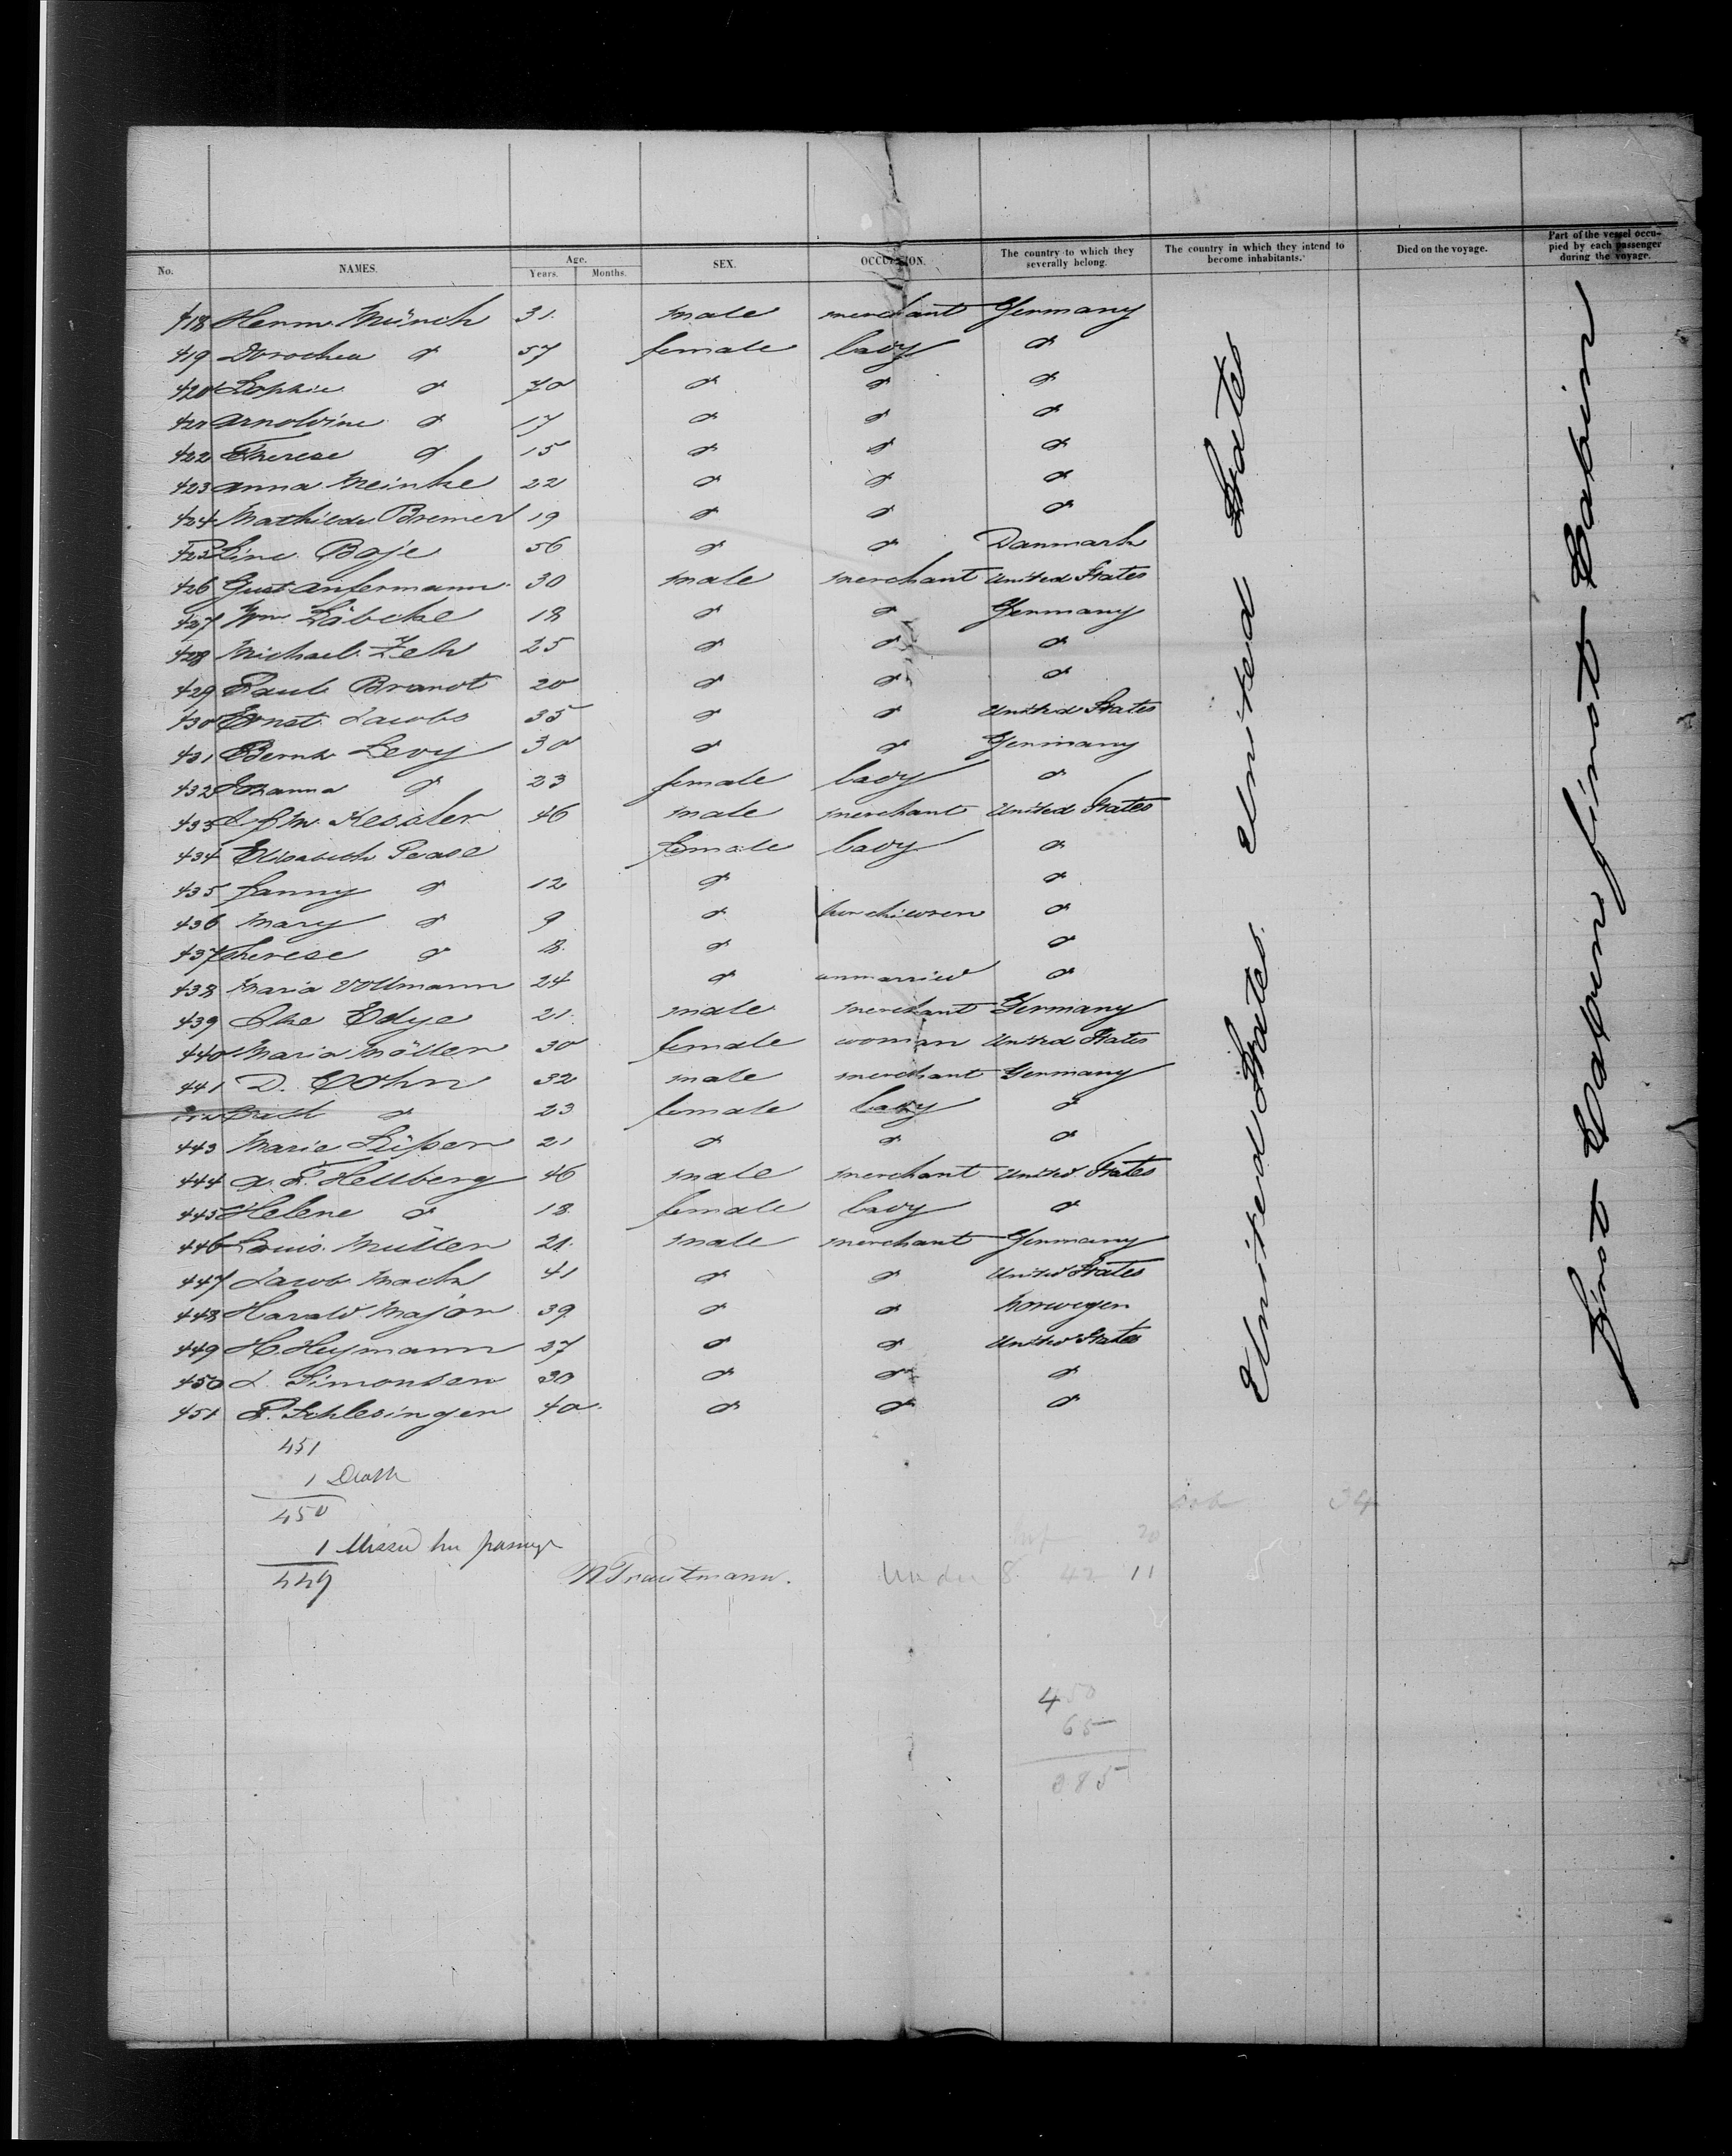 No. NAMES. Age. Years. Months. SEX. OCCUPATION. The country to which they severally belong. The country in which they intend to become inhabitants. Died on the voyage. Part of the vessel occupied by each passenger during the voyage.
418 Herm. Münch 31. male merchant Germany
419 Dorothea do 57 female lady do
420 Sophie do 70 do do do
421 Arnoldine do 17 do do do
422 Therese do 15 do do do
423 Anna Meinke 22 do do do
424 Mathilde Bremer 19 do do do
425 Line Boje 56 do do Danmark
426 Gust Anfermann 30 male merchant United States
427 Wm Lübcke 18 do do Germany
428 Michael Zeh 25 do do do
429 Paul Brandt 20 do do do
430 Ernst Jacobs 35 do do United States
431 Bernh Levy 30 do do Germany
432 do 23 female lady do
433 Kessler 46 male merchant United States
434 Elisabeth Pease female lady do
435 Fanny do 12 do do
436 Mary do 9 do her children do
437 Therese do 8. do do
438 Maria Vollmann 24 do unmarried do
439 Edye 21. male merchant Germany
440 Maria Möller 30 female woman United States
441 D. Cohn 32 male merchant Germany
442 do 23 female lady do
443 Marie 21 do do do
444 A. F. Hellberg 46 male merchant United States
445 Helene do 18. female lady do
446 Louis Müller 21. male merchant Germany
447 Jacob Mack 41 do do United States
448 Harald Major 39. do do Norwegen
449 H. Heymann 37 do do United States
450 L. Simonsen 30 do do do
451 P. Schlesinger 40. do do do
United States United States
First Cabin First Cabin
451
1 Death
450
1 Missed her passage
449 Trautmann.
34
20
Under 8. 42 11
450
65
385